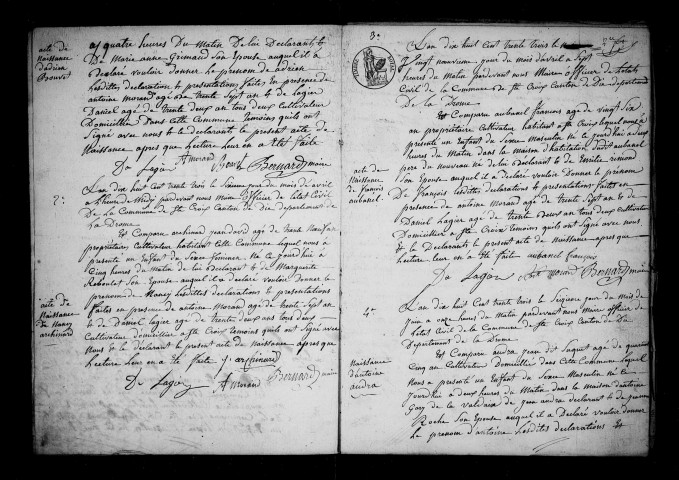 acte de
Naissance
d'adrien
Bouvet
a quatre heures Du Matin De lui Declarant, &
De Marie anne Grimaud Son Epouse auquel il a
Declaré vouloir Donner le prenom de adrien
lesdittes declarations & presentations faites en presence de
antoine morand agé de trente Sept an & de lagier
Daniel agé de trente deux an tous deux Cultivateur
Domicilier dans cette Commune temoins quils ont
Signé avec nous & le declarant le present acte de
Naissance apres que Lecture leur en a été faite
D Lagier Amorand Bouvet Bernard maire
2e
L'an dix huit Cent trente trois le pour du mois de avril
a lheure de Midy pardevant nous Maire officier de l'etat Civil
De La Commune de Ste Croix Canton de Die departement de
La Drome
Est Comparu archinard jean david agé de trente
propriétaire Cultivateur habitant Cette Commune lequel nous a
presenté un Enfant du Sexe feminin Né Ce jourd'hui à
Cinq heures du Matin de lui Declarant & de Marguerite
Reboulet Son Epouse auquel il a declaré vouloir Donner le
acte de
Naissance
de Nancy
archinard
prenom de Nancy Lesdittes declarations & presentations
faites en presence de antoine Morand agé de trente Sept an
& de Daniel lagier agé de trente deux ans tous deux
Cultivateur domicilier a Ste Croix temoins quils ont Signé avec
Nous & le declarant le present acte de Naissance apres que
Lecture leur en a été faite j. archinard
D Lagier Amorand Bernard maire
3e
L'an dix huit Cent trente trois le
vingt neuvieme jour du mois d'avril a Sept
heures du Matin pardevant nous Maire officier de l'etat
Civil de La Commune de Ste Croix Canton de Die departement
De La Drome
Est Comparu aubanel françois agé de vingt Six
an propriétaire Cultivateur habitant a Ste Croix lequel nous a
presenté un Enfant du Sexe Masculin né Ce jourd'hui a deux
heures du Matin dans la maison d'habitation dudit aubanel
acte de
Naissance
de françois
aubanel
né de lui declarant & de remond
son Epouse auquel il a declaré vouloir donner le prenom
De françois lesdittes declarations & presentations faites en
presence de antoine morand agé de trente Sept an & de
Daniel Lagier agé de trente deux an tous deux Cultivateur
Domicilier a Ste Croix temoins quils ont Signé avec nous
& le Declarant le present acte de Naissance apres que
Lecture leur en a été faite aubanel françois
D Lagier Amorand Bernard maire
4e
L'an dix huit Cent trente trois le Sixieme jour du mois de
juin a onze heures du Matin pardevant nous Maire officier de
l'etat Civil de La Commune de Ste Croix Canton de Die
Departement de La Drome
Naissance
d'antoine
audra
Est Comparu audra jean dit agé de quarante
Cinq an Cultivateur Domicilier dans Cette Commune lequel
Nous a presenté un Enfant du Sexe Masculin né Ce
jourd'hui a deux heures du Matin dans la maison d'antoine
Gory de la de jean audra declarant & de jeanne
Roche Son Epouse auquel il a Declaré vouloir donner
le prenom d'antoine lesdittes declarations &